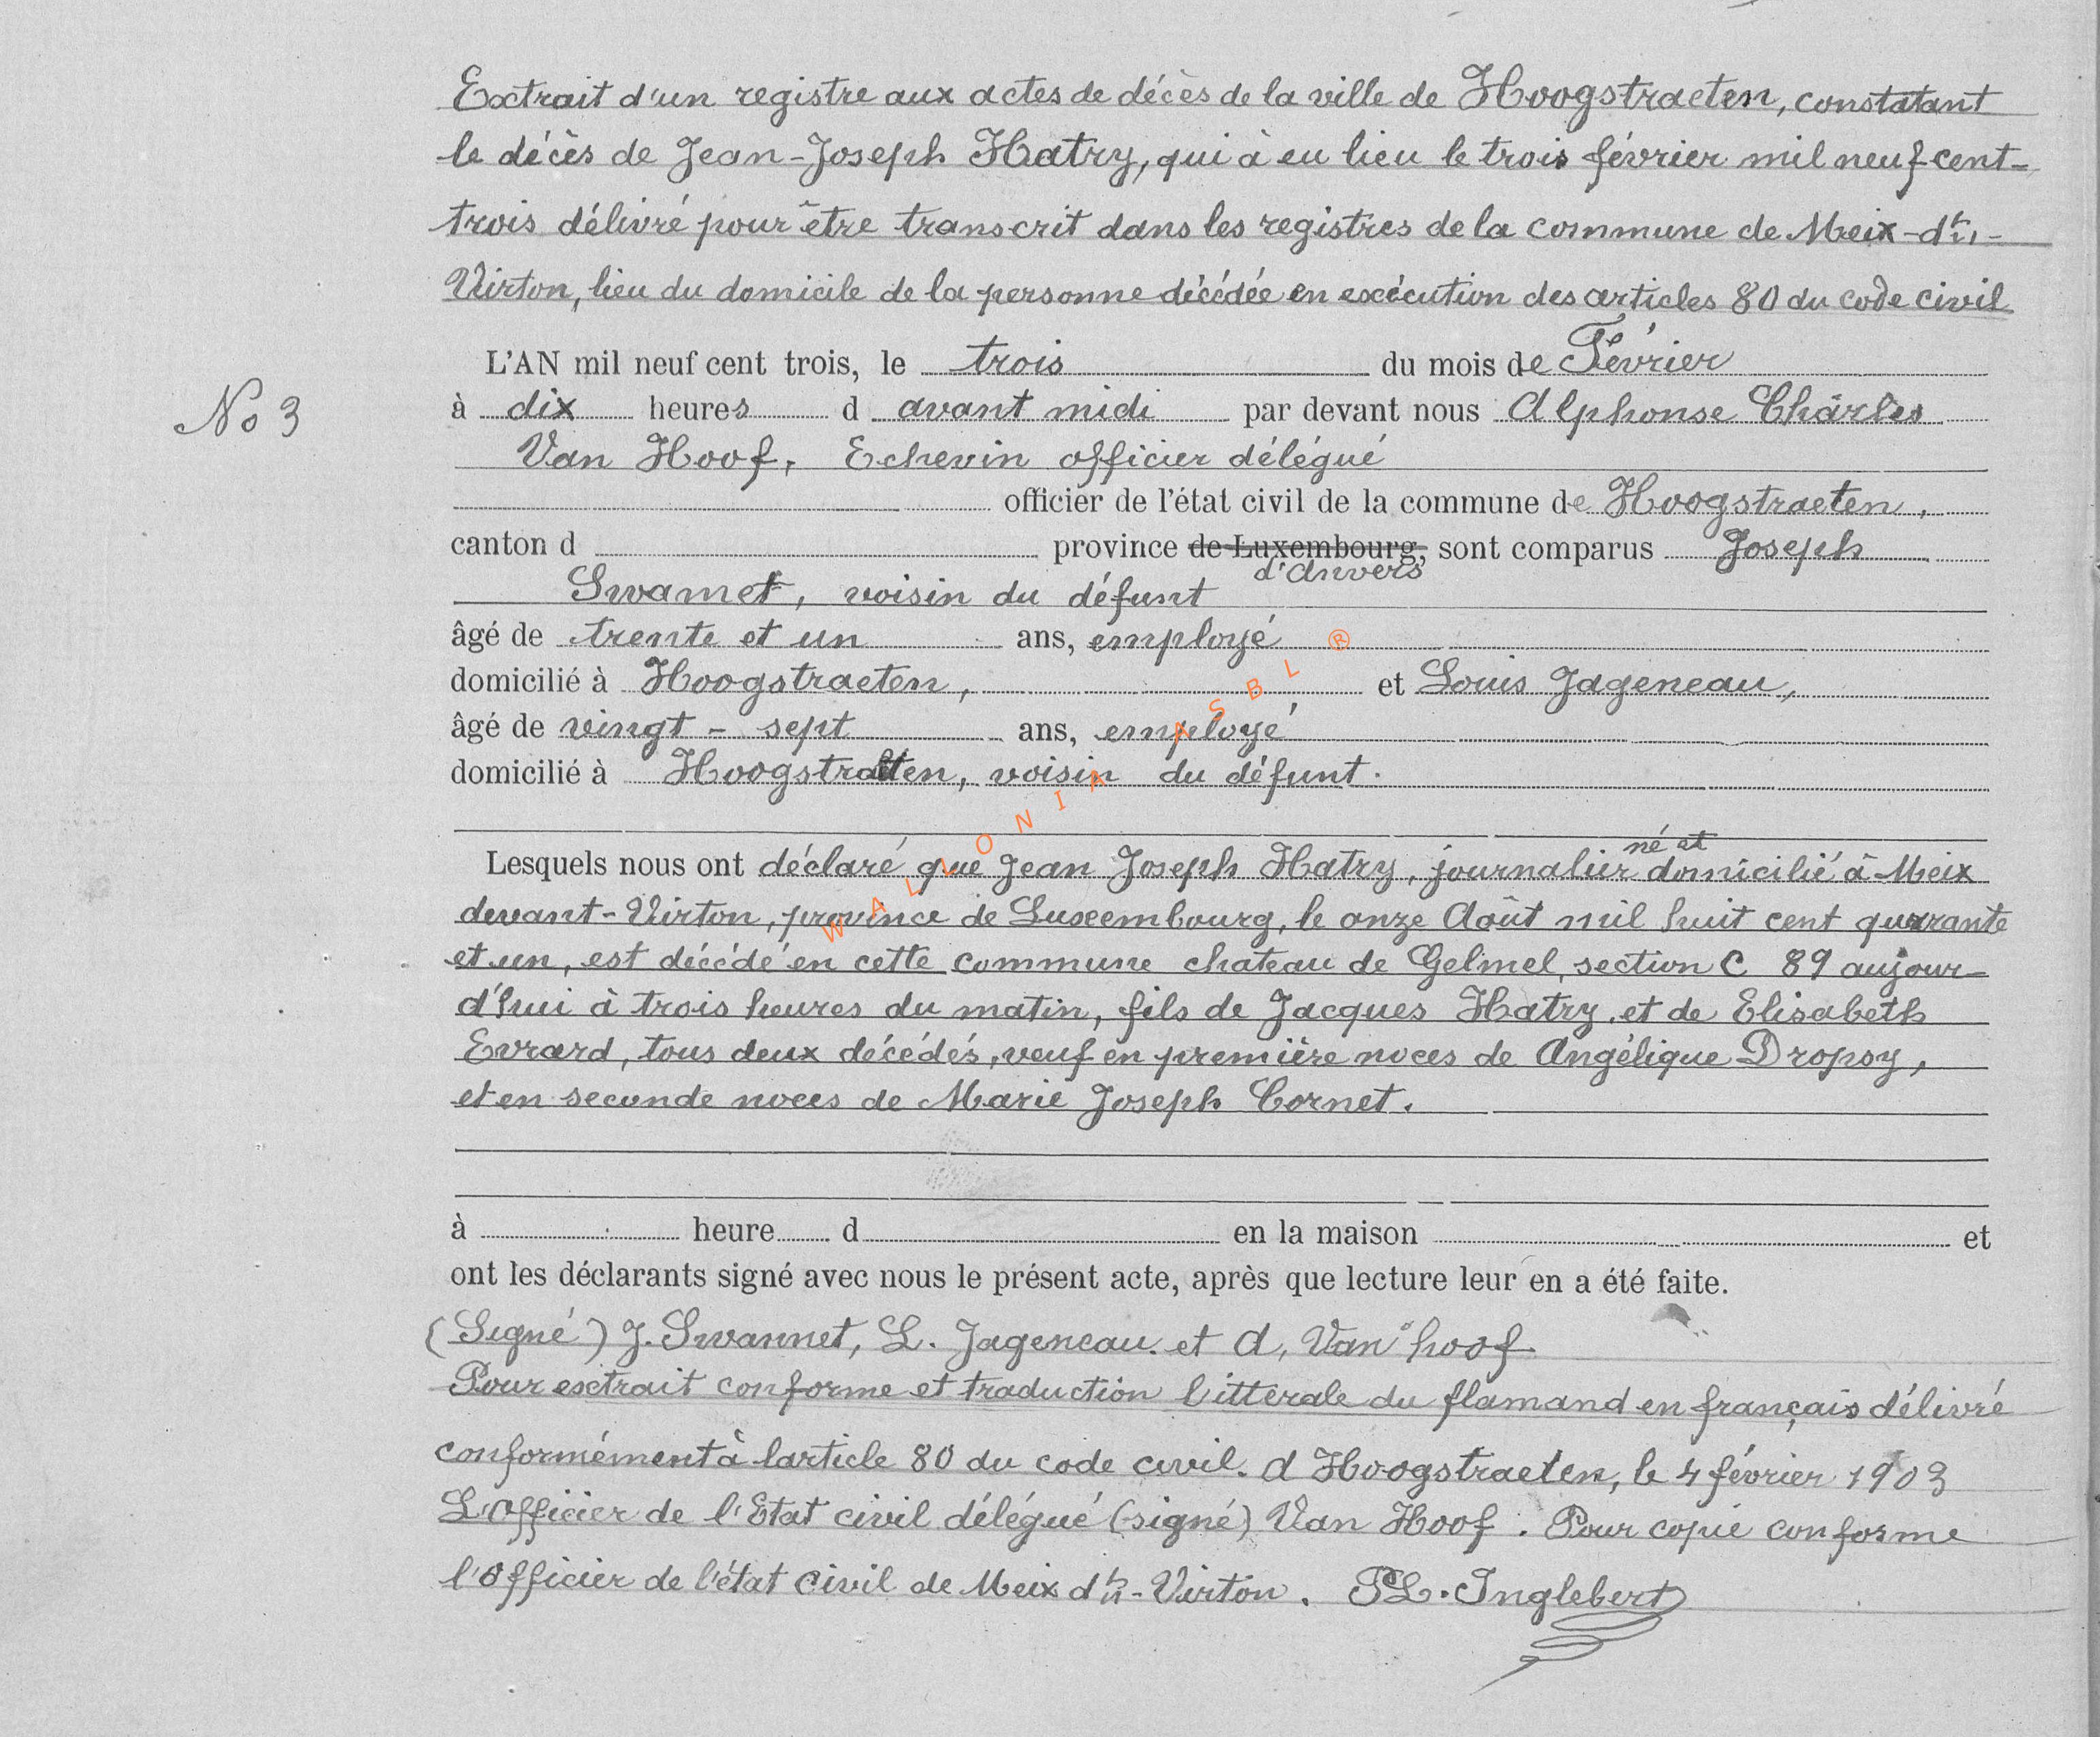 Extrait d'un registre aux actes de décès de la ville de Hoogstraeten, constatant
le décès de Jean-Joseph Hatry, qui à eu lieu le trois février mil neuf cent-
trois délivré pour être transcrit dans les registres de la commune de Meix-dt-
Virton, lieu du domicile de la personne décédée en exécution des articles 80 du code civil
L'AN mil neuf cent trois, le trois du mois de Février
No 3
à dix heures d avant midi par devant nous Alphonse Charles
Van Hoof, Echevin officier délégué
officier de l'état civil de la commune de Hoogstraeten,
canton d province de Luxembourg, sont comparus Joseph
d'Anvers
Swamet, voisin du défunt
âgé de trente et un ans, employé
domicilié à Hoogstraeten, et Louis Jageneau,
âgé de vingt - sept ans, employé
domicilié à Hoogstraeten, voisin du défunt.
né et
Lesquels nous ont déclaré que Jean Joseph Hatry, journalier domicilié à Meix
devant-Virton, province de Luxembourg, le onze Août mil huit cent quarante
et un, est décédé en cette commune chateau de Gelmel, section C 89 aujour-
d'hui à trois heures du matin, fils de Jacques Hatry, et de Elisabeth
Evrard, tous deux décédés, veuf en première noces de Angélique Dropsy,
et en seconde noces de Marie Joseph Cornet.
à heure d en la maison et
ont les déclarants signé avec nous le présent acte, après que lecture leur en a été faite.
(Signé) J. Swannet, L. Jageneau. et A, Van hoof
Pour extrait conforme et traduction litterale du flamand en français délivré
conformément à larticle 80 du code civil. A Hoogstraeten, le 4 février 1903
L'Officier de l'Etat civil délégué (signé) Van Hoof. Pour copie conforme
l'officier de l'état civil de Meix dt-Virton. PL. Inglebert
WALLONIA ASBL ®